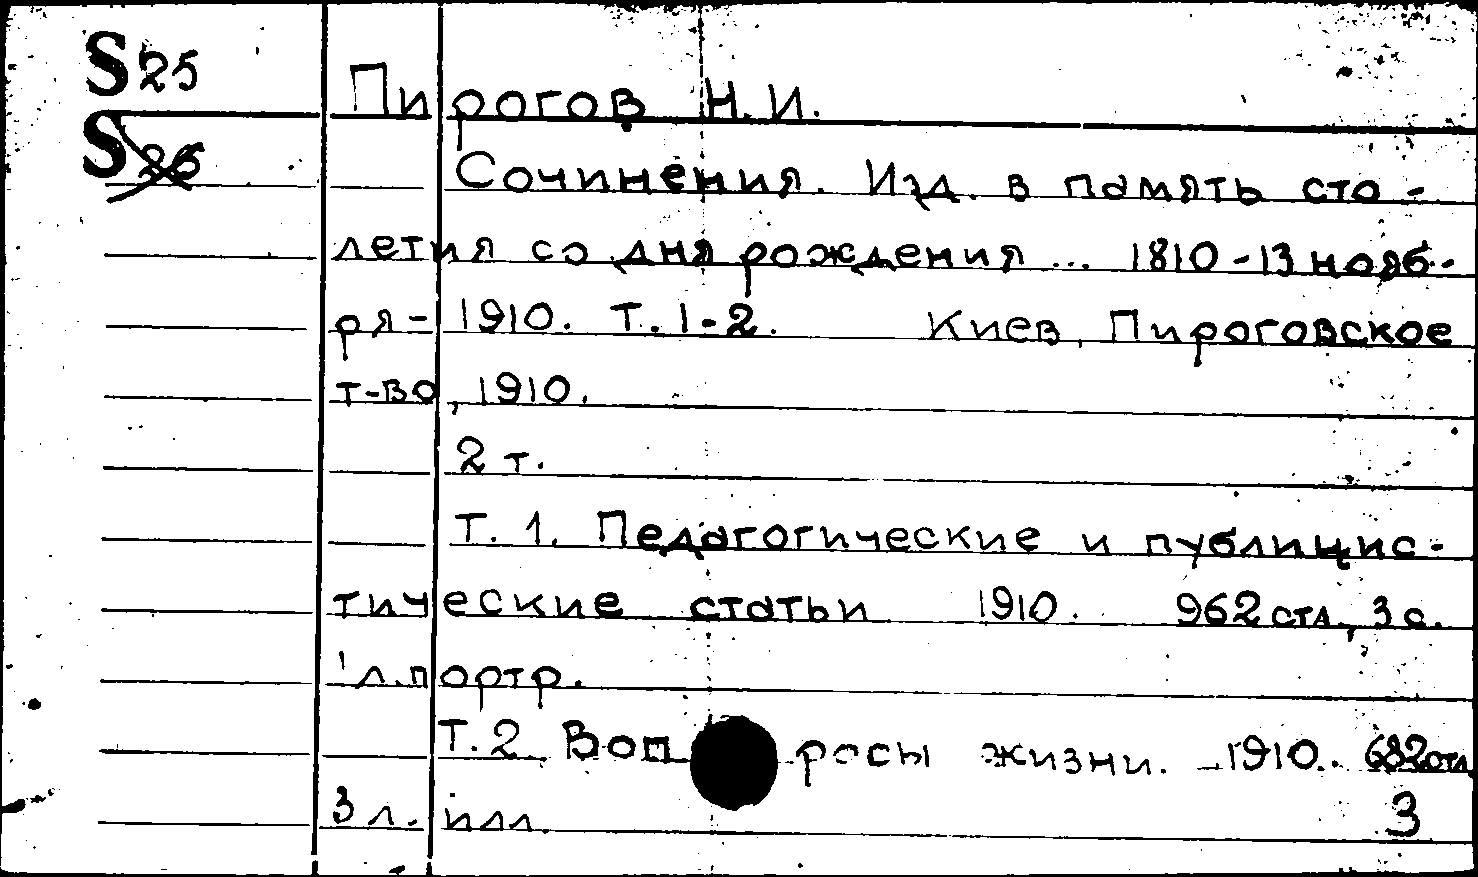 S25
S26
Пирогов Н.И.
Сочинения. Изд. в память сто-
летия со дня рождения ... 1810-13 нояб-
ря-1910. Т. 1-2. Киев, Пироговское
т-во, 1910.
2 т.
Т. 1. Педагогические и публицис-
тические статьи 1910. 962 стл., 3 с.
1 л. портр.
Т. 2 Вопросы жизни. 1910. 682 стл
3 л. илл.
3